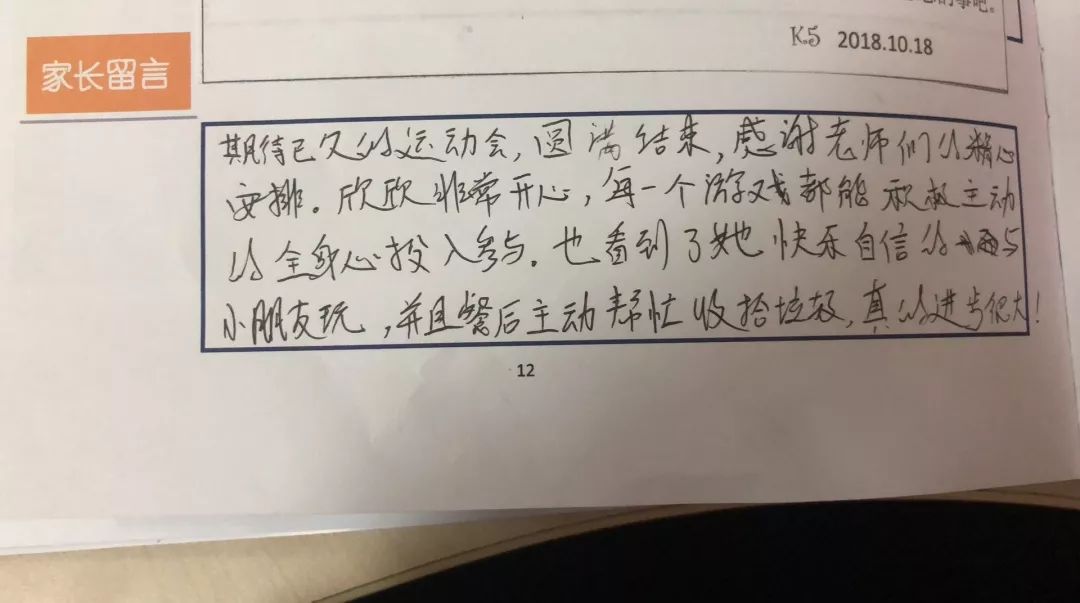 的事吧。
K5 2018.10.18
家长留言
期待已久的运动会，圆满结束，感谢老师们的精心
安排。欣欣非常开心，每一个游戏都能积极主动
的全身心投入参与。也看到了她快乐自信的与
小朋友玩，并且餐后主动帮忙收拾垃圾，真的进步很大！
12